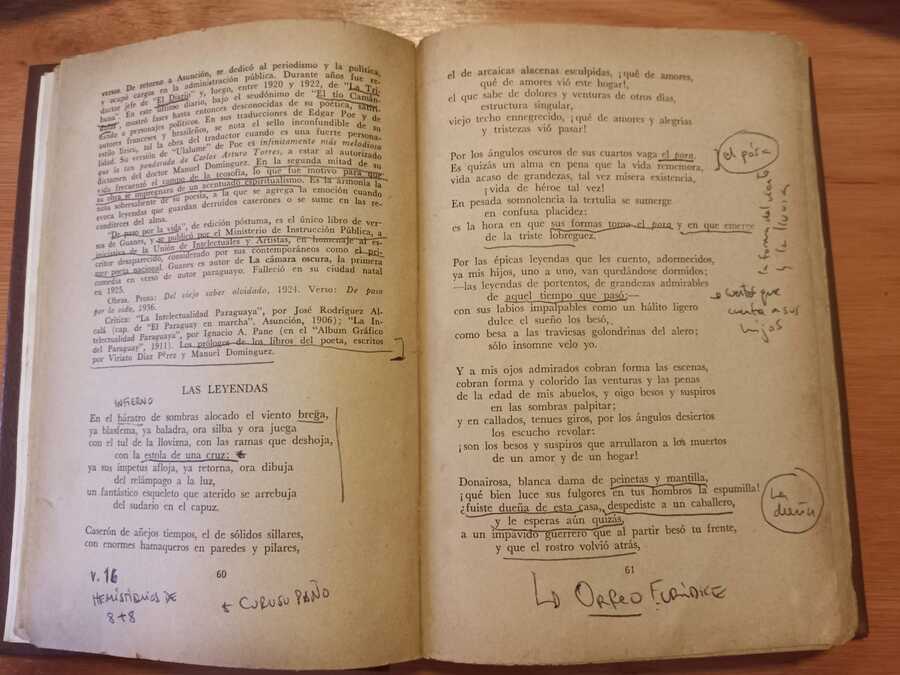 versos. De retorno a Asunción, se dedicó al periodismo y la política,
y ocupó cargos en la administración pública. Durante años fue re-
ductor jefe de "El Diario" y, luego, entre 1920 y 1922, de "La Tri-
buna". En este último diario, bajo el seudónimo de "El tío Camán-
dulas", mostró fases hasta entonces desconocidas de su poética, satiri-
zando a personajes políticos. En sus traducciones de Edgar Poe y de
autores franceses y brasileños, se nota el sello inconfundible de su
estilo lírico, tal la obra del traductor cuando es una fuerte persona-
lidad. Su versión de "Ulalume" de Poe es infinitamente más melodiosa
que la tan ponderada de Carlos Arturo Torres, a estar al autorizado
dictamen del doctor Manuel Domínguez. En la segunda mitad de su
vida frecuentó el campo de la teosofía, lo que fue motivo para que
su obra se impregnara de un acentuado espiritualismo. Es la armonía la
nota sobresaliente de su poesía, a la que se agrega la emoción cuando
evoca leyendas que guardan derruídos caserones o se sume en las re-
conditeces del alma.
"De paso por la vida", de edición póstuma, es el único libro de ver-
sos de Guanes, y se publicó por el Ministerio de Instrucción Pública, a
iniciativa de la Unión de Intelectuales y Artistas, en homenaje al es-
critor desaparecido, considerado por sus contemporáneos como el pri-
mer poeta nacional. Guanes es autor de La cámara oscura, la primera
comedia en verso de autor paraguayo. Falleció en su ciudad natal
en 1925.
Obras. Prosa: Del viejo saber olvidado, 1924. Verso: De paso
por la vida, 1936.
Crítica: "La Intelectualidad Paraguaya", por José Rodríguez Al-
calá (cap. de "El Paraguay en marcha". Asunción, 1906); "La In-
telectualidad Paraguaya", por Ignacio A. Pane (en el "Album Gráfico
del Paraguay", 1911). Los prólogos de los libros del poeta, escritos
por Viriato Díaz Pérez y Manuel Domínguez.
LAS LEYENDAS
INFIERNO
En el báratro de sombras alocado el viento brega,
ya blasfema, ya baladra, ora silba y ora juega
con el tul de la llovizna, con las ramas que deshoja,
con la estola de una cruz;
ya sus ímpetus afloja, ya retorna, ora dibuja
del relámpago a la luz,
un fantástico esqueleto que aterido se arrebuja
del sudario en el capuz.
Caserón de añejos tiempos, el de sólidos sillares,
con enormes hamaqueros en paredes y pilares,
60
v. 16
HEMISTIQUIOS DE
8+8
* CURUSU PAÑO
el de arcaicas alacenas esculpidas, ¡qué de amores,
qué de amores vió este hogar!,
el que sabe de dolores y venturas de otros días,
estructura singular,
viejo techo ennegrecido, ¡qué de amores y alegrías
y tristezas vió pasar!
Por los ángulos oscuros de sus cuartos vaga el pora.
Es quizás un alma en pena que la vida rememora,
vida acaso de grandezas, tal vez mísera existencia,
¡vida de héroe tal vez!
En pesada somnolencia la tertulia se sumerge
en confusa placidez:
es la hora en que sus formas toma el pora y en que emerge
de la triste lobreguez.
el póra
la forma del viento
y la lluvia
Por las épicas leyendas que les cuento, adormecidos,
ya mis hijos, uno a uno, van quedándose dormidos;
—las leyendas de portentos, de grandezas admirables
de aquel tiempo que pasó;—
con sus labios impalpables como un hálito ligero
dulce el sueño los besó,
como besa a las traviesas golondrinas del alero;
sólo insomne velo yo.
cuentos que
cuenta a sus
hijos
Y a mis ojos admirados cobran forma las escenas,
cobran forma y colorido las venturas y las penas
de la edad de mis abuelos, y oigo besos y suspiros
en las sombras palpitar;
y en callados, tenues giros, por los ángulos desiertos
los escucho revolar:
¡son los besos y suspiros que arrullaron a los muertos
de un amor y de un hogar!
Donairosa, blanca dama de peinetas y mantilla,
¡qué bien luce sus fulgores en tus hombros la espumilla!
¿fuiste dueña de esta casa, despediste a un caballero,
y le esperas aún quizás,
a un impávido guerrero que al partir besó tu frente,
y que el rostro volvió atrás,
La
dueña
61
ORFEO EURÍDICE